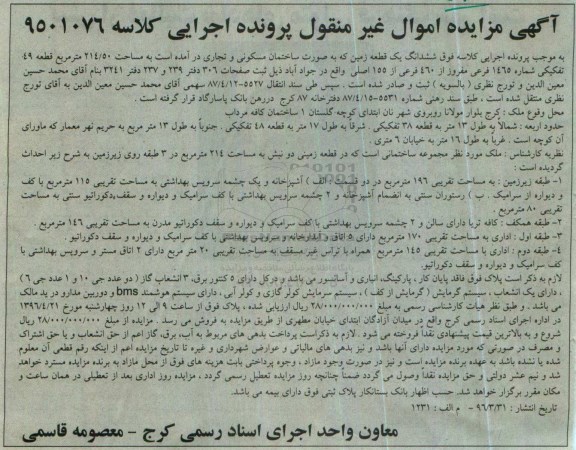 آگهی مزایده اموال غیر منقول پرونده اجرایی کلاسه ۹۵۰۱۰۷۶
به موجب پرونده اجرایی کلاسه فوق ششدانگ یک قطعه زمین که به صورت ساختمان مسکونی و تجاری در آمده است به مساحت ۲۱۴/۵۰ مترمربع قطعه ۴۹
تفکیکی شماره ۱۴۶۵ فرعی مفروز از ۴۶۰ فرعی از ۱۵۵ اصلی واقع در جواد آباد ذیل ثبت صفحات ۳۰۶ دفتر ۲۳۹ و ۲۳۷ دفتر ۳۲۴۱ بنام آقای محمد حسین
معین الدین و تورج نظری ( بالسویه ) ثبت و صادر شده است . سپس طی سند انتقال ۵۵۲۷-۸۷/۴/۱۲ سهمی آقای محمد حسین معین الدین به آقای تورج
نظری منتقل شده است ، طبق سند رهنی شماره ۵۵۳۱-۸۷/۴/۱۵ دفترخانه ۸۷ کرج در رهن بانک پاسارگاد قرار گرفته است .
محل وقوع ملک : کرج بلوار مولانا روبروی شهر نان ابتدای کوچه گلستان ۱ ساختمان کافه مرداب
حدود اربعه : شمالاً به طول ۱۳ متر به قطعه ۳۸ تفکیکی . شرقاً به طول ۱۷ متر به قطعه ۴۸ تفکیکی . جنوباً به طول ۱۳ متر مربع به حریم نهر معمار که ماورای
آن کوچه است . غرباً به طول ۱۶ متر به خیابان ۶ متری .
نظریه کارشناس : ملک مورد نظر مجموعه ساختمانی است که در قطعه زمینی دو نبش به مساحت ۲۱۴ مترمربع در ۳ طبقه روی زیرزمین به شرح زیر احداث
گردیده است :
۱- طبقه زیرزمین : به مساحت تقریبی ۱۹۶ مترمربع در دو قسمت ( الف ) آشپزخانه و یک چشمه سرویس بهداشتی به مساحت تقریبی ۱۱۵ مترمربع با کف
و دیواره از سرامیک . ب ) رستوران سنتی به انضمام آشپزخانه و ۲ چشمه سرویس بهداشتی با کف سرامیک و دیواره و سقف،دکوراتیو سنتی به مساحت
تقریبی ۸۰ مترمربع .
۲- طبقه همکف : کافه تریا دارای سالن و ۲ چشمه سرویس بهداشتی با کف سرامیک و دیواره و سقف دکوراتیو مدرن به مساحت تقریبی ۱۴۶ مترمربع .
۳- طبقه اول : اداری به مساحت تقریبی ۱۷۰ مترمربع دارای ۵ اتاق و آبدارخانه و سرویس بهداشتی با کف سرامیک و دیواره و سقف دکوراتیو
۴- طبقه دوم : اداری با مساحت تقریبی ۱۴۵ مترمربع همراه با تراس غیرمسقف به مساحت تقریبی ۲۰ متر مربع دارای ۲ اتاق مستر و سرویس بهداشتی با
کف سرامیک و دیواره و سقف دکوراتیو.
لازم به ذکر است پلاک فوق فاقد پایان کار ، پارکینگ، انباری و آسانسور می باشد و در کل دارای ۵ کنتور برق، ۳ انشعاب گاز ( دو عدد جی ۱۰ و ۱ عدد جی ۶ )
، دارای یک انشعاب ، سیستم گرمایش ( گرمایش از کف ) ، سیستم سرمایش کولر گازی و کولر آبی ، دارای سیستم هوشمند bms و دوربین مدارو در ید مالک
می باشد . و طبق نظر هیأت کارشناسی رسمی به مبلغ ۲۸/۰۰۰/۰۰۰/۰۰۰ ریال ارزیابی شده ، پلاک فوق از ساعت ۹ الی ۱۲ روز چهارشنبه مورخ ۱۳۹۶/۴/۲۱
در اداره اجرای اسناد رسمی کرج واقع در میدان آزادگان ابتدای خیابان مطهری از طریق مزایده به فروش می رسد . مزایده از مبلغ ۲۸/۰۰۰/۰۰۰/۰۰۰ ریال
شروع و به بالاترین قیمت پیشنهادی نقداً فروخته می شود . لازم به ذکراست پرداخت بدهی های مربوط به آب،برق، گاز اعم از حق انشعاب و یا حق اشتراک
و مصرف در صورتی که مورد مزایده دارای آنها باشد و نیز بدهی های مالیاتی و عوارض شهرداری و غیره تا تاریخ مزایده اعم از اینکه رقم قطعی آن معلوم
شده یا نشده باشد به عهده برنده مزایده است و نیز در صورت وجود مازاد ، وجوه پرداختی بابت هزینه های فوق از محل مازاد به برنده مزایده مسترد خواهد
شد و نیم عشر دولتی و حق مزایده نقداً وصول می گردد ضمناً چنانچه روز مزایده تعطیل رسمی گردد ، مزایده روز اداری بعد از تعطیلی در همان ساعت و
مکان مقرر برگزار خواهد شد. حسب اظهار بانک بستانکار پلاک ثبتی فوق دارای بیمه می باشد.
تاریخ انتشار : ۹۶/۳/۳۱ - م الف : ۱۲۳۱
معاون واحد اجرای اسناد رسمی کرج - معصومه قاسمی